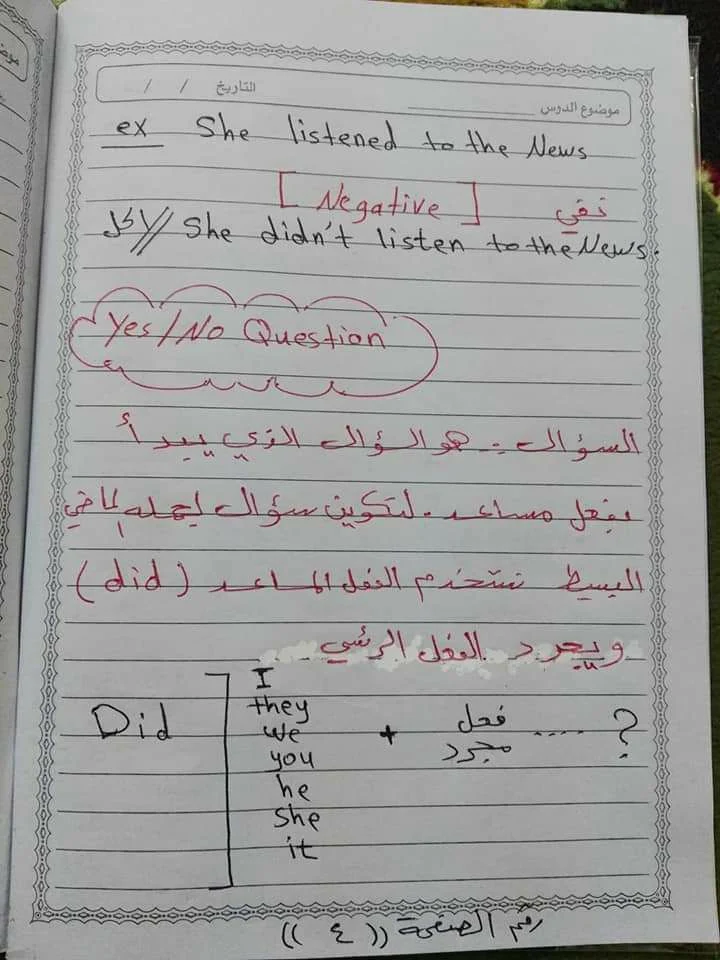 موضوع الدرس التاريخ / /
ex She listened to the News
[ Negative ] نفي
الحل // She didn't listen to the News.
Yes/No Question
السؤال :- هو السؤال الذي يبدأ
بفعل مساعد . لتكوين سؤال لجمله الماضي
البسيط نستخدم الفعل المساعد (did)
ويجرد الفعل الرئسي
Did
I
they
we
you
he
she
it
+ فعل مجرد .... ?
رقم الصفحة (( ٤ ))